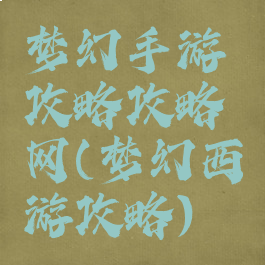 梦幻手游
攻略攻略
网(梦幻西
游攻略)